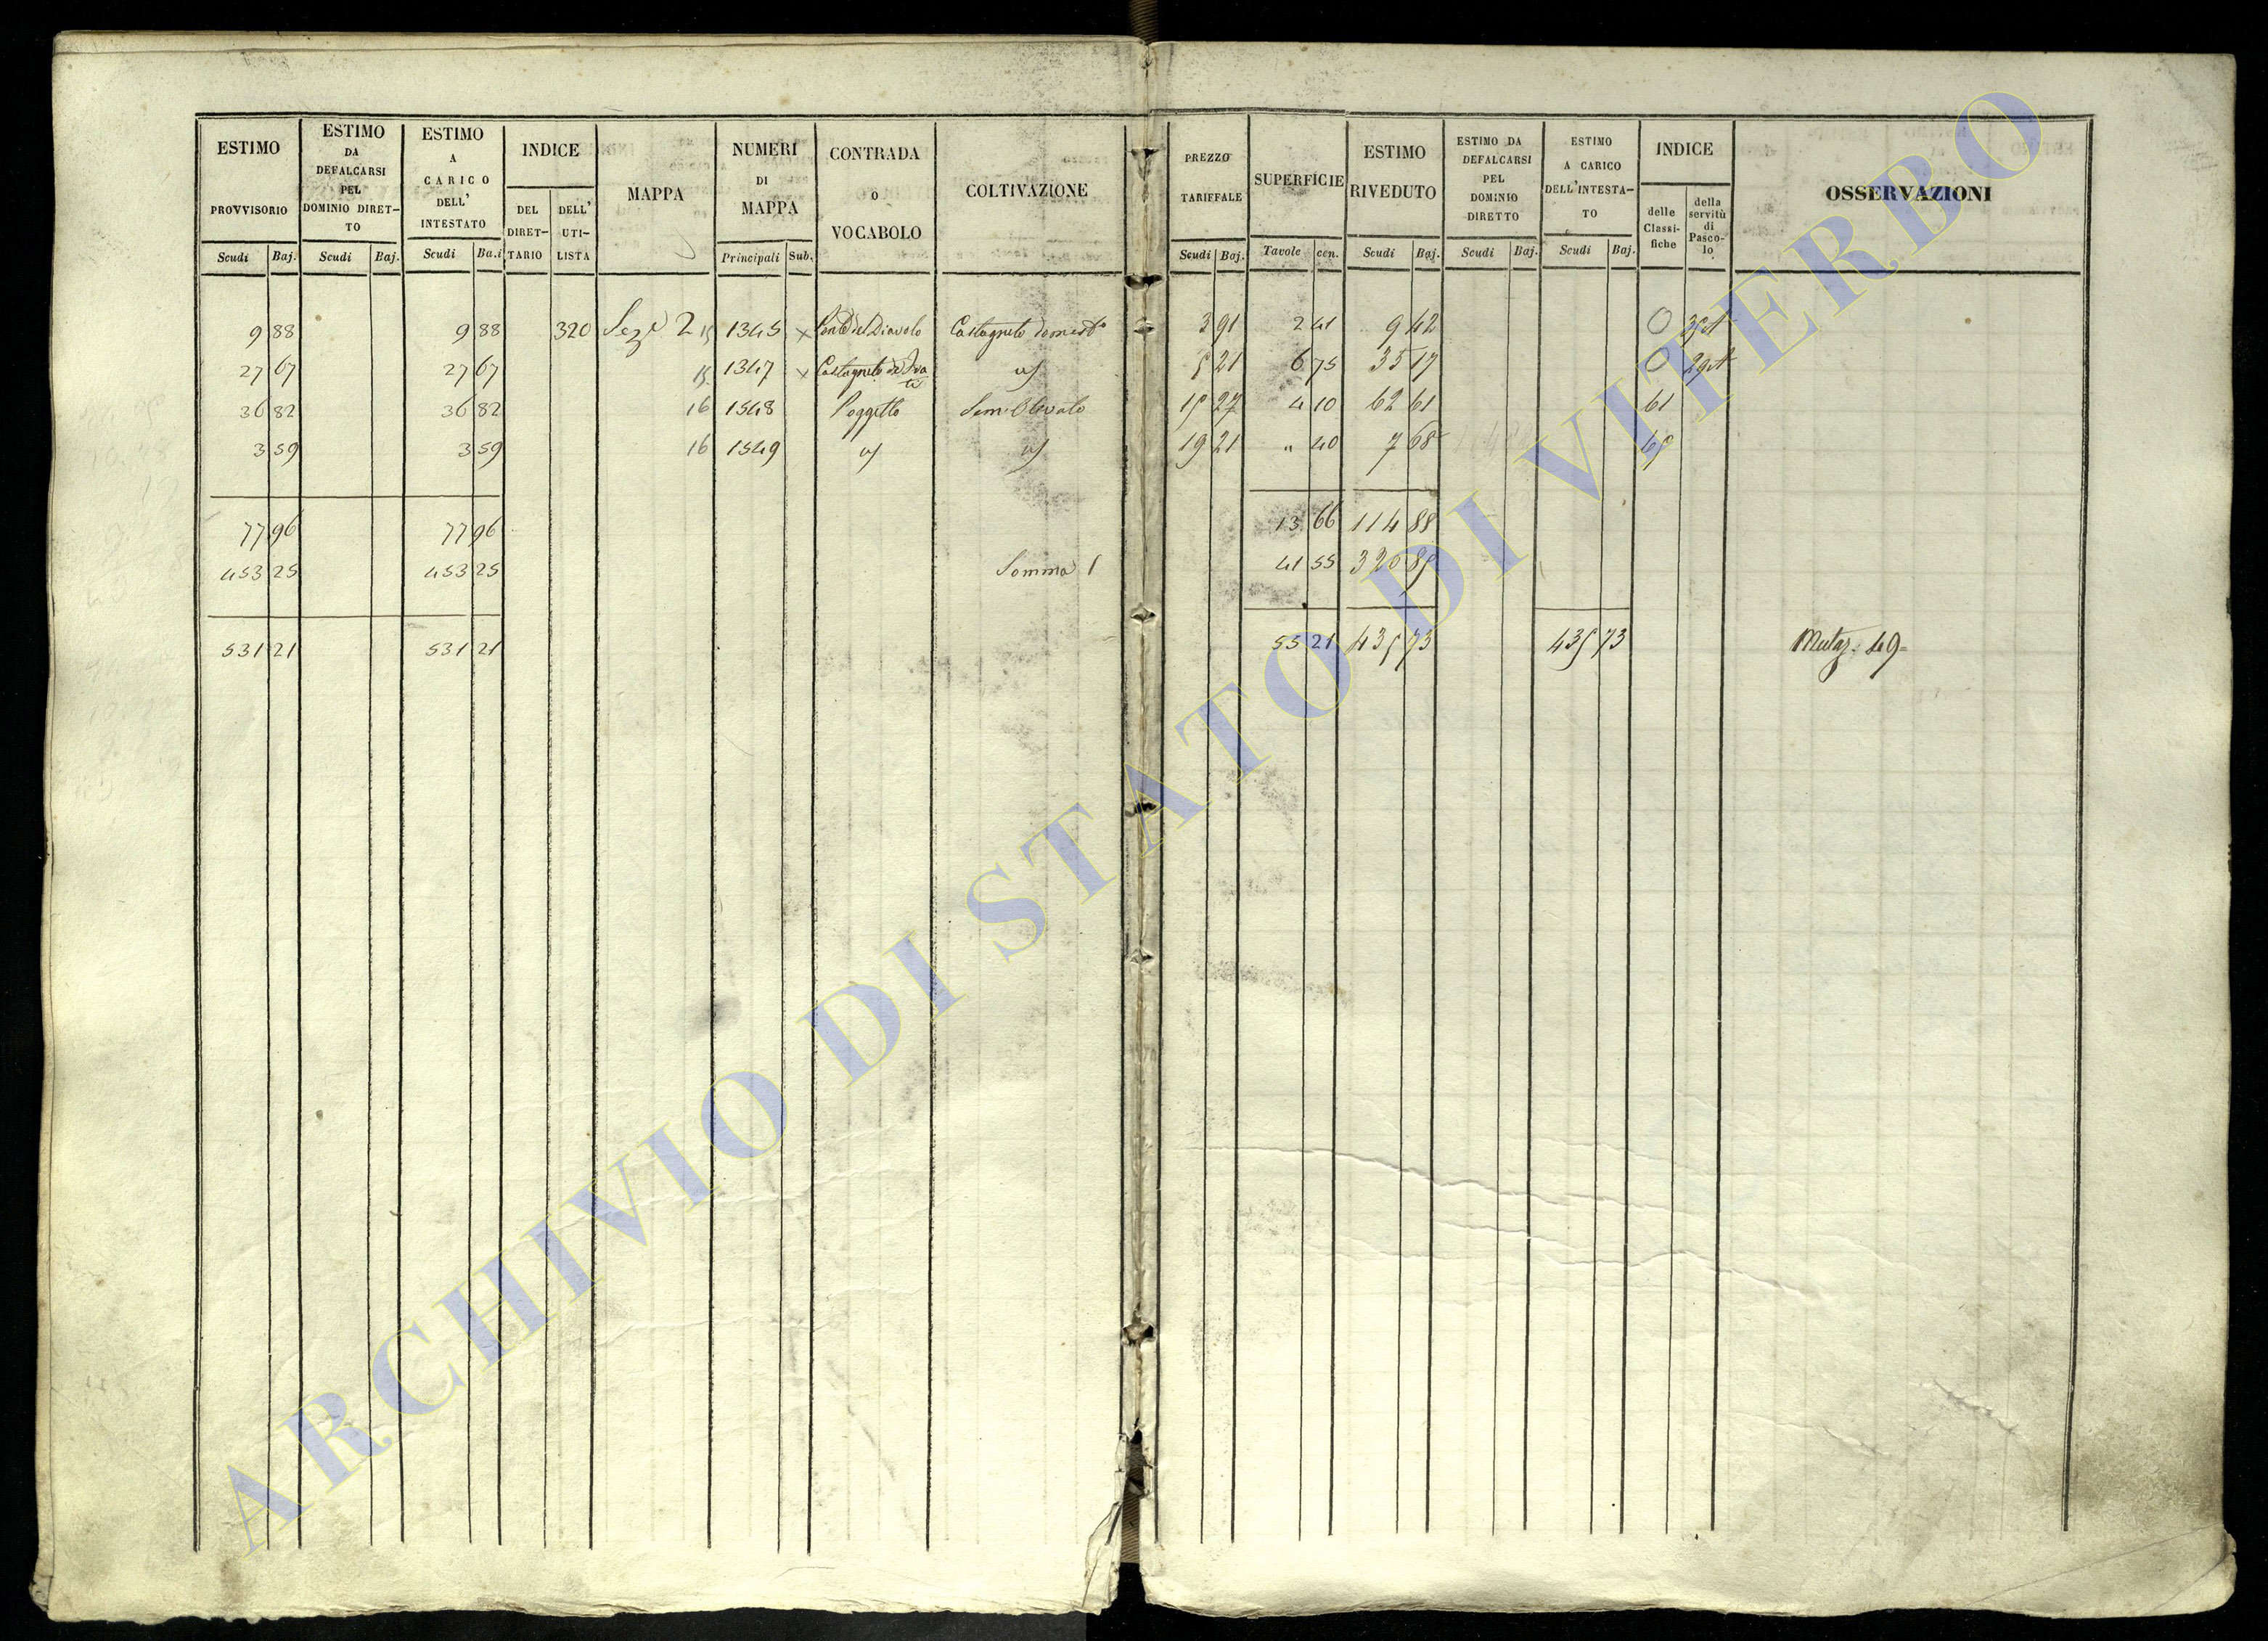 ESTIMO PROVVISORIO
ESTIMO DA DEFALCARSI PEL DOMINIO DIRET-TO
ESTIMO A CARICO DELL' INTESTATO
INDICE
DEL DIRET-TARIO
DELL' UTI-LISTA
MAPPA
NUMERI DI MAPPA
CONTRADA O VOCABOLO
COLTIVAZIONE
PREZZO TARIFFALE
SUPERFICIE
ESTIMO RIVEDUTO
ESTIMO DA DEFALCARSI PEL DOMINIO DIRETTO
ESTIMO A CARICO DELL'INTESTA-TO
INDICE
delle Classi-fiche
della servitù di Pasco-lo
OSSERVAZIONI
Scudi Baj. Scudi Baj. Scudi Ba.i Principali Sub. Scudi Baj. Tavole cen. Scudi Baj. Scudi Baj. Scudi Baj.
9 88 9 88 320 Sez.e 2 15 1345 × Ponte del Diavolo Castagneto domest.o 3 91 2 41 9 42 0
27 67 27 67 15 1347 × Castagneto a) 5 21 6 75 35 17 0
36 82 36 82 16 1548 Poggetto Sem. Olivato 15 27 4 10 62 61 61
3 59 3 59 16 1549 a) a) 19 21 " 40 7 68
77 96 77 96 13 66 114 88
453 25 453 25 Somma 41 55 320 85
531 21 531 21 55 21 435 73 435 73 Mutaz. 49
ARCHIVIO DI STATO DI VITERBO